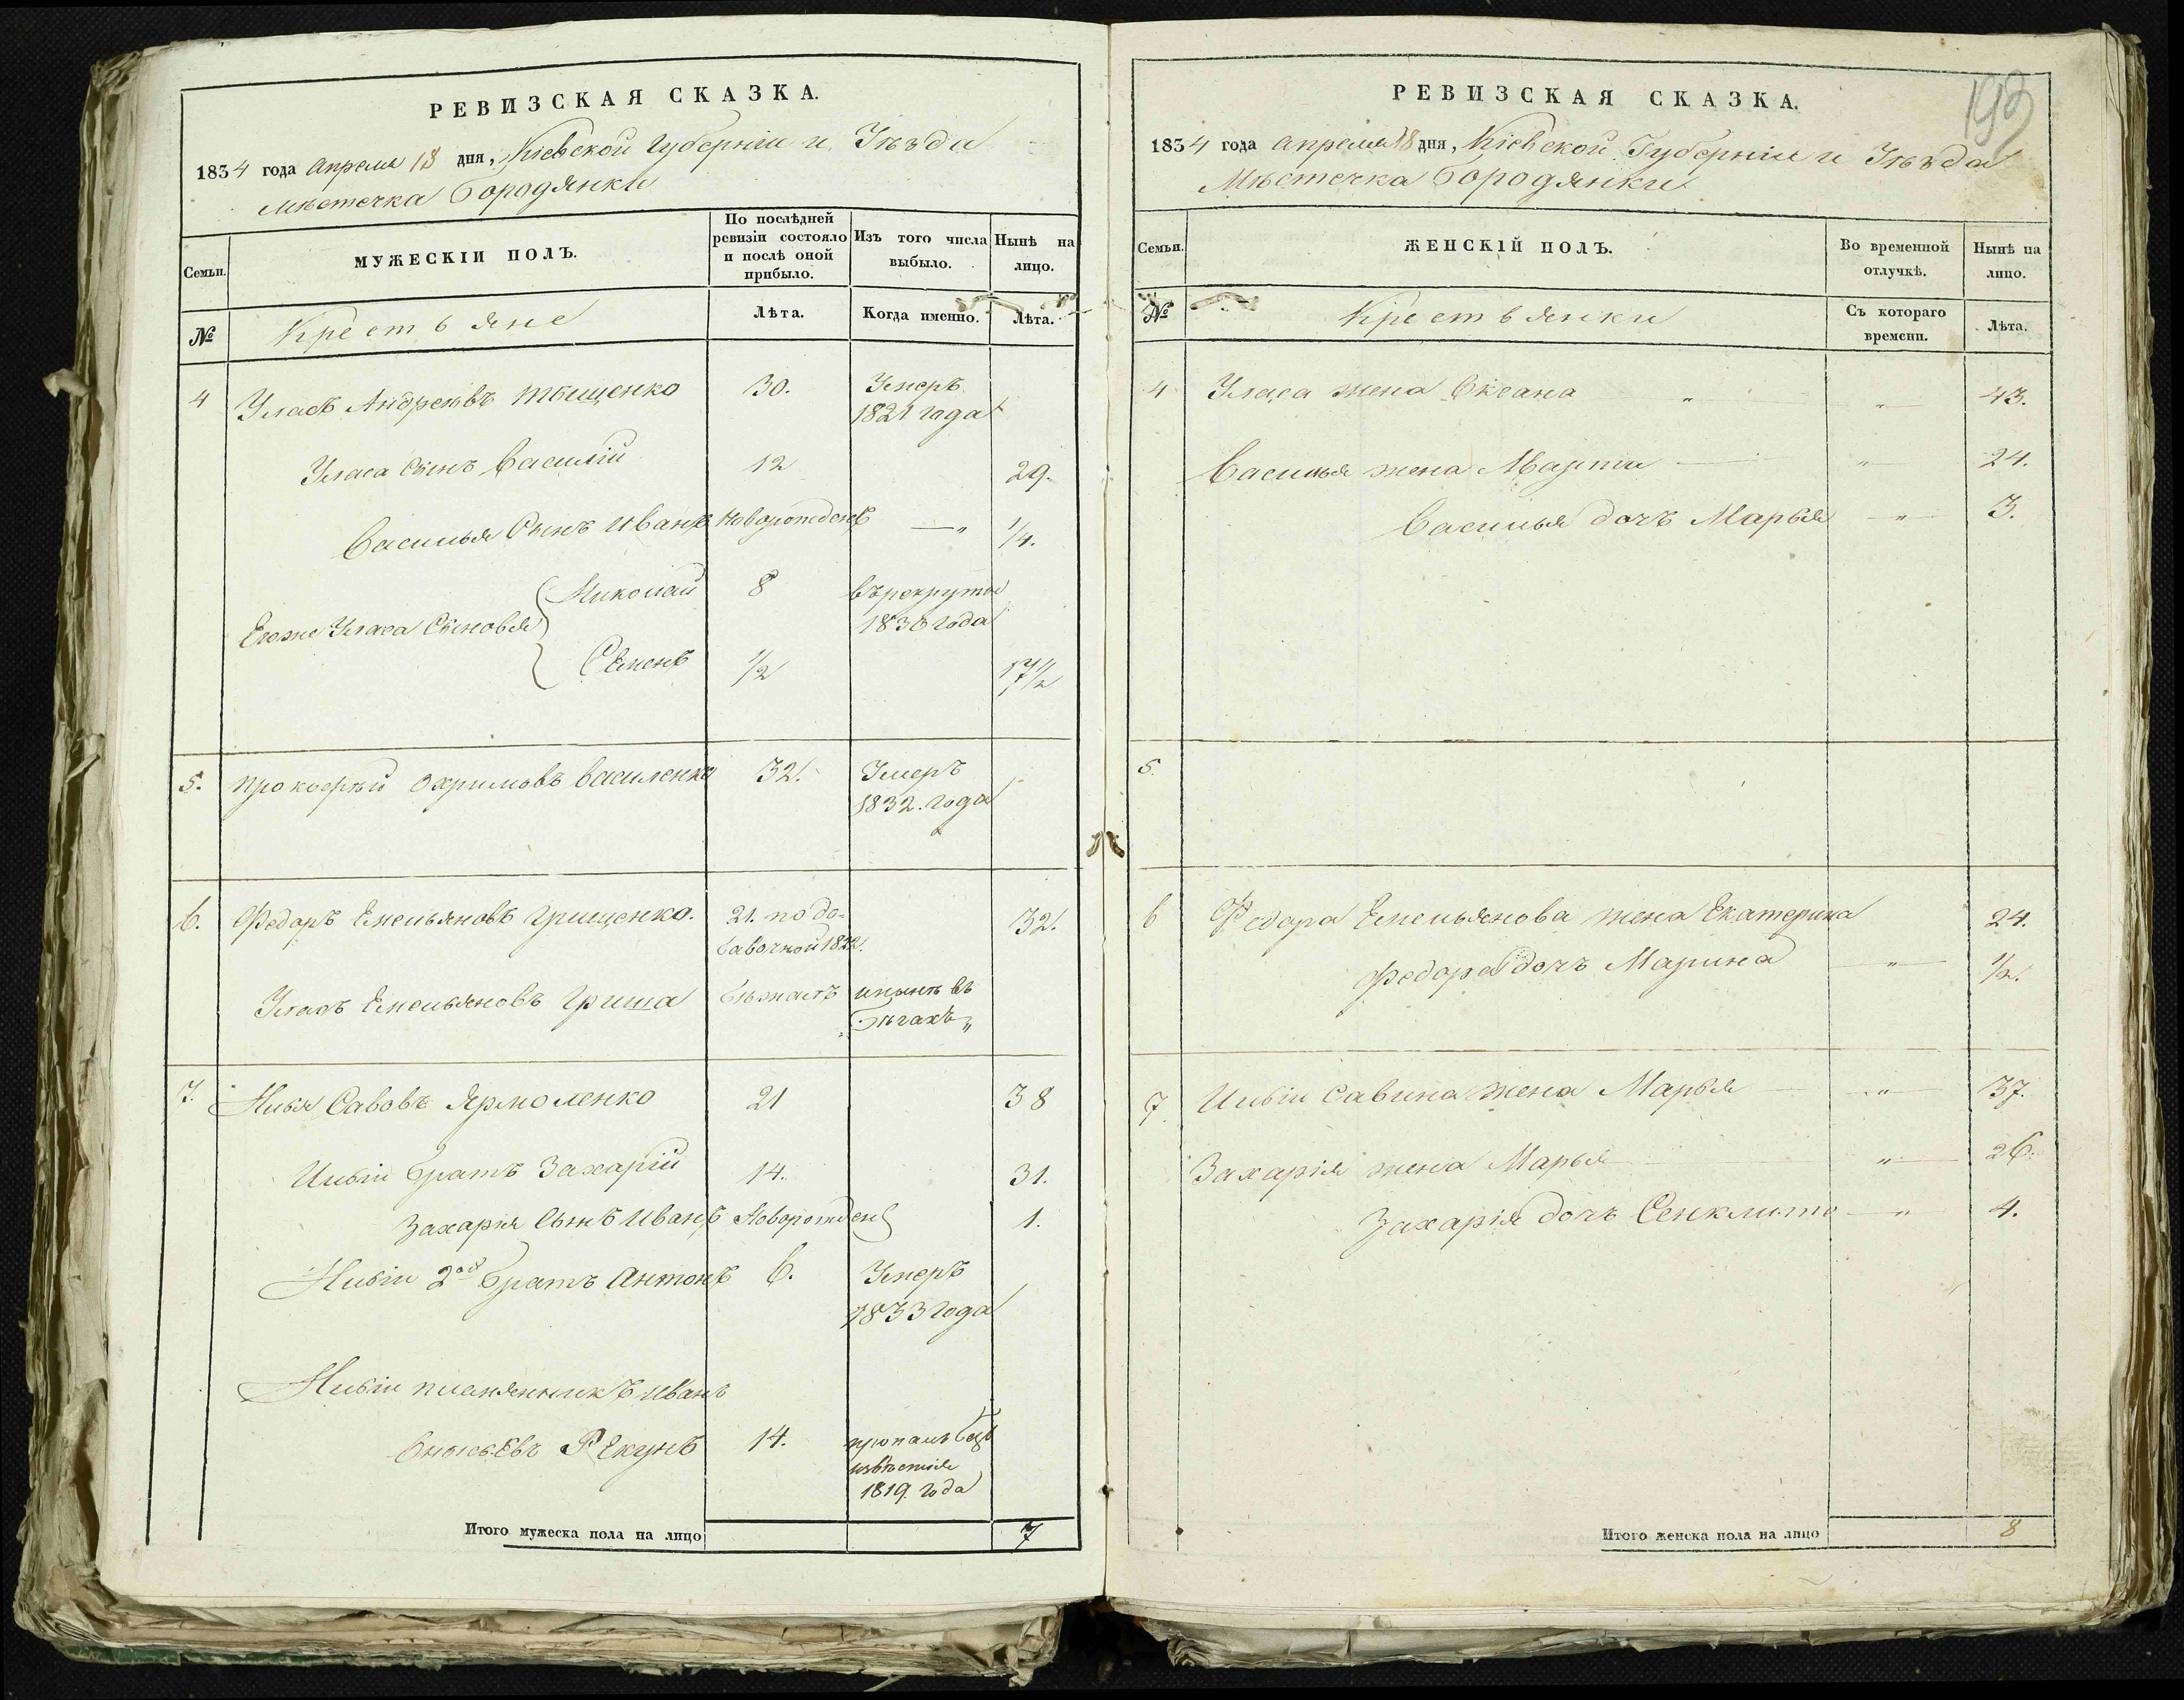 РЕВИЗСКАЯ СКАЗКА.
1834 года Апреля 18 дня, Кіевской Губерніи и Уѣзда
мѣстечка Бородянки
Семьи.
МУЖЕСКІЙ ПОЛЪ.
По послѣдней ревизіи состояло и послѣ оной прибыло.
Изъ того числа выбыло.
Нынѣ на лицо.
№
Крестьяне
Лѣта.
Когда именно.
Лѣта.
4 Уласъ Андреевъ 30. Умеръ
1821 года
Уласа Сынъ Василій 12 29.
Василья Сынъ Иванъ Новорожденъ — „ 1/4.
Николай 8 въ рекруты
Егоже Уласа Сыновья 1830 года
Семенъ 1/2 17 1/2
5. Прокофій Охримовъ Василенко 32. Умеръ
1832. года
6. Федоръ Емельяновъ Грищенко. 21. по до-
бавочной 1822. 32.
Уласъ Емельяновъ Гриша бѣжалъ и нынѣ въ
бѣгахъ „
7. Илья Савовъ Ярмоленко 21 38
Ильи братъ Захарій 14. 31.
Захарія Сынъ Иванъ Новорожденъ 1.
Ильи 2ой братъ Антонъ 6. Умеръ
1833 года
Ильи племянникъ Иванъ
14. пропалъ безъ
извѣстія
1819. года
Итого мужеска пола на лицо 7
РЕВИЗСКАЯ СКАЗКА.
1834 года апреля 18 дня, Кіевской Губерніи и Уѣзда
Мѣстечка Бородянки
Семьи.
ЖЕНСКІЙ ПОЛЪ.
Во временной отлучкѣ.
Нынѣ на лицо.
№
Крестьянки
Съ котораго времени.
Лѣта.
4 Уласа жена Оксана „ „ 43.
Василья жена — „ 24.
Василья дочь Марья — „ 3.
5.
6 Федора Емельянова жена Екатерина 24.
Федора дочь Марина „ 1/2.
7. Ильи Савина жена Марья — „ 37.
Захарія жена Марья — „ 26.
Захарія дочь — „ 4.
Итого женска пола на лицо 8